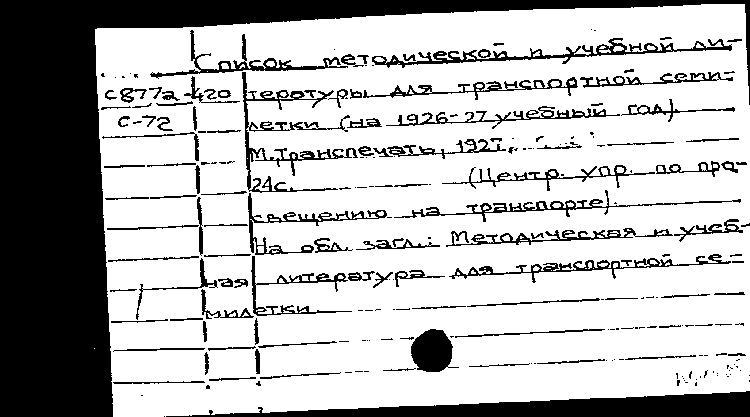 Список методической и учебной ли-
с877а-420 тературы для транспортной семи-
с-72 летки (на 1926-27 учебный год).
М.,Транспечать, 1927.
24с. (Центр. упр. по про-
свещению на транспорте).
На обл. загл.: Методическая и учеб-
ная литература для транспортной се-
милетки.